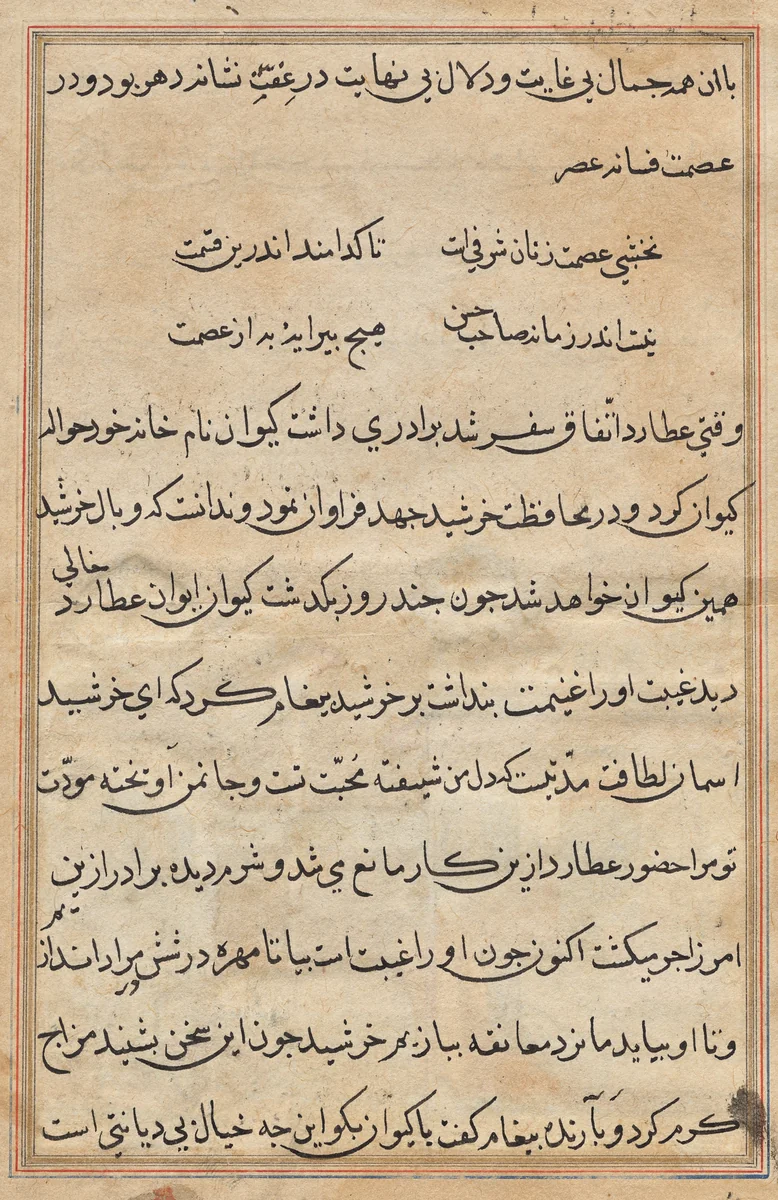 با ان همه جمال بي غايت و دلال بي نهايت در عفت نشانه دهر بود و در
عصمت فسانه عصر
نخشبي عصمت زنان شرفي است تا كدامند اندرين قسمت
نيست اندر زمانه صاحب حسن هيچ پيرايهٔ به از عصمت
وقتي عطارد اتّفاق سفر شد برادري داشت كيوان نام خانه خود حواله
كيوان كرد و در محافظت خرشيد جهد فراوان نمود و ندانست كه وبال خرشيد
همين كيوان خواهد شد جون جند روز بكدشت كيوان ايوان عطارد خالي
ديد غيبت او را غنيمت بنداشت بر خرشيد پيغام كرد كه اي خرشيد
اسمان لطافت مدّتيست كه دل من شيفته مُحبّت تست و جان من آوتخته مودّت
تو مرا حضور عطارد ازين كار مانع مي شد و شرم ديده برادر ازين
امر زاجر ميكشت اكنون جون او را غيبت است بيا تا مهره در شش در مراد اندازيم
و تا او بيايد ما نرد معانقه ببازيم خرشيد جون اين سخن بشنيد مزاج
كرم كرد و بآرنده پيغام كفت با كيوان بكو اين جه خيال بي ديانتي است